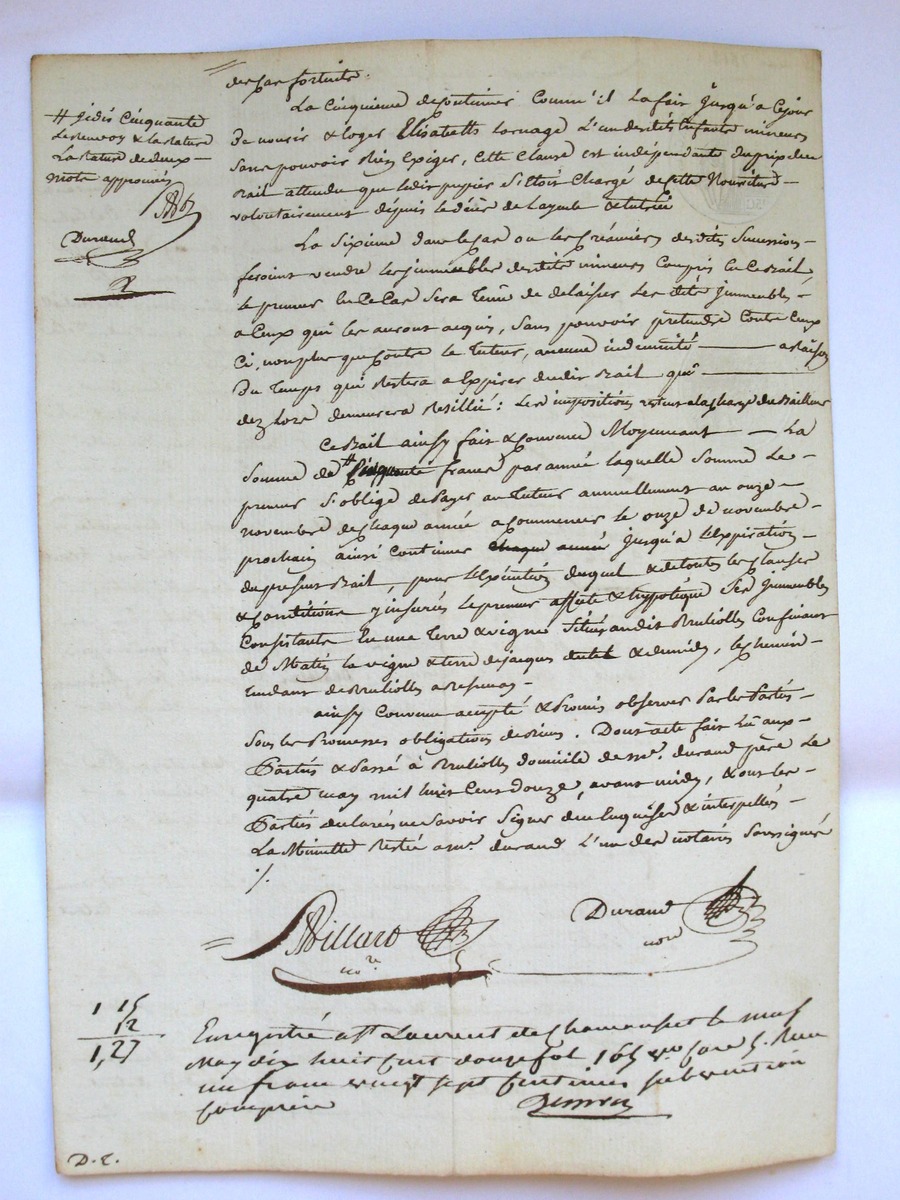 des cas fortuits.
La Cinquieme de Continuer Comm'il La fait Jusqu'a Cejour
De nourir & loger Elisabeth Lornage L'un desdits Enfants mineurs
Sans pouvoir Rien Exiger, Cette Clause est indépendante du prix du
Bail attendu que ledit pupier S'ettoit Chargé de cette Nouriture
volontairement depuis le décès de Layeule & tutrice
La Sixieme dans le Cas ou les Créanciers desdites Successions
feroient vendre les immeubles desdits mineurs Compris En Ce Bail,
le preneur En Ce Cas Sera Tenu de delaisser Les dits Immeubles
a Ceux qui les auront acquis, Sans pouvoir pretendre Contre Ceux
Ci, non plus que Contre le Tuteur, aucune indemnité a Raison
Du Temps qui Restera a Expirer dudit Bail qui
dez Lors demeurera Resillié: Les impositions restent a la charge du Bailleur
Ce Bail ainsy fait & Convenu Moyennant La
Somme de # Cinquante francs par année laquelle Somme Le
preneur S'oblige de Payer au Tuteur annuellement au onze
novembre de Chaque année a Commencer le onze de novembre
prochain ainsi Continuer chaque année Jusqu'a l'Expiration
du present Bail, pour l'Exécution duquel & de toutes les Clauses
& Conditions y inserés le preneur affecte & hypotéque Ses Immeubles
Consistants En une Terre & vigne Situés audit Brulioles Confinant
de Matin la vigne & terre de jacques & de midy, le Chemin
Tendant de Brulioles a
ainsy Convenu accepté & Promis observer Par les Parties
Sous les Promesses obligations de Biens. Dont acte fait Lû aux
Parties & Passé à Brulioles domicile de Me. durand père Le
quatre may mil huit Cent Douze, avant midy, & ont les
Parties declarés ne Savoir Signer de ce Enquises & interpellés
La Minutte Restée a Me. durand L'un des notaires Soussignés
./.
# Cinquante
Le renvoy & la rature
La rature de deux
mots approuvés
Durand
Billard
nore
Durand
nore
1 15
12
1,27
Enregistré a St Laurent de Chamousset le neuf
May dix huit cent douze fol 165 vo Case 5. Reçu
un franc vingt sept Centimes subvention
Comprise
D.E.